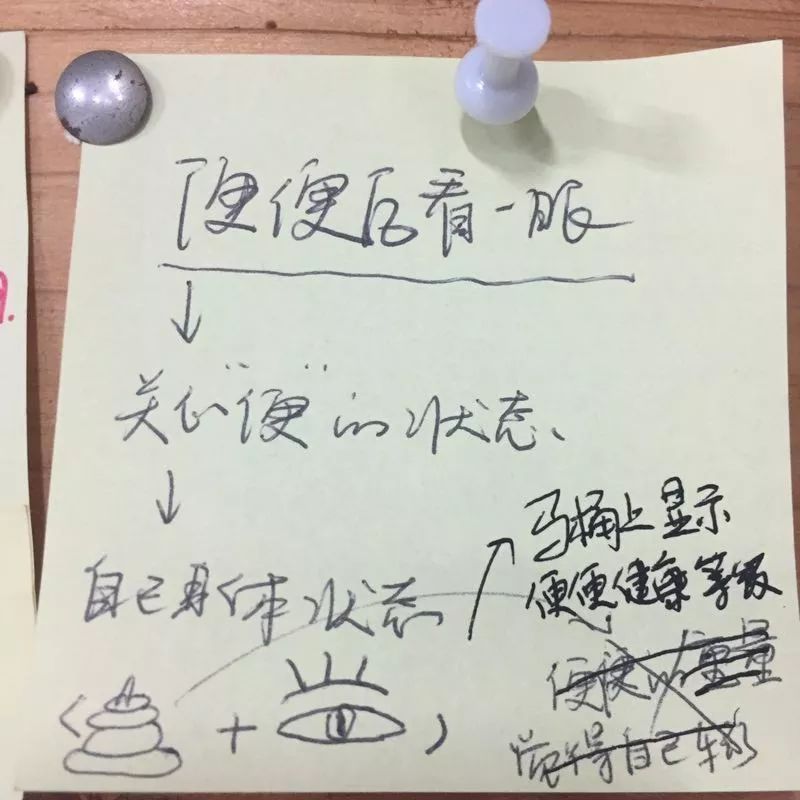 便便后看一眼
关心"便"的状态、
自己身体状态
( + )
马桶上显示
便便健康等级
便便的重量
觉得自己轻